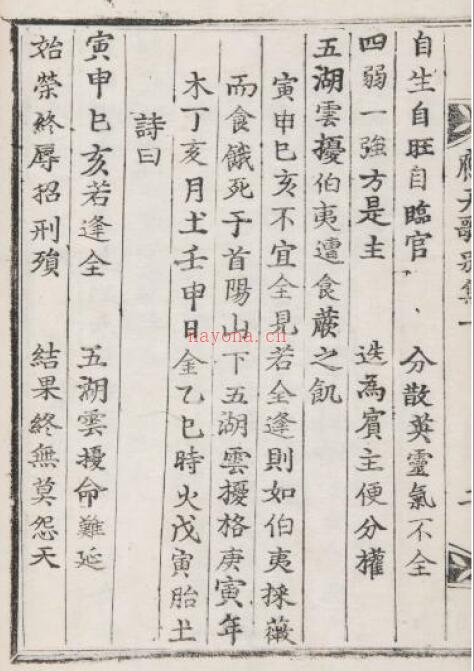 自生自旺自臨官　分散英靈氣不全
四弱一強方是主　迭為賓主便分權
五湖雲擾伯夷遭食蕨之飢
寅申巳亥不宜全見若全逢則如伯夷採薇
而食餓死于首陽山下五湖雲擾格庚寅年
木丁亥月土壬申日金乙巳時火戊寅胎土
詩曰
寅申巳亥若逢全　五湖雲擾命難延
始榮終辱招刑殞　結果終無莫怨天
nayona.cn